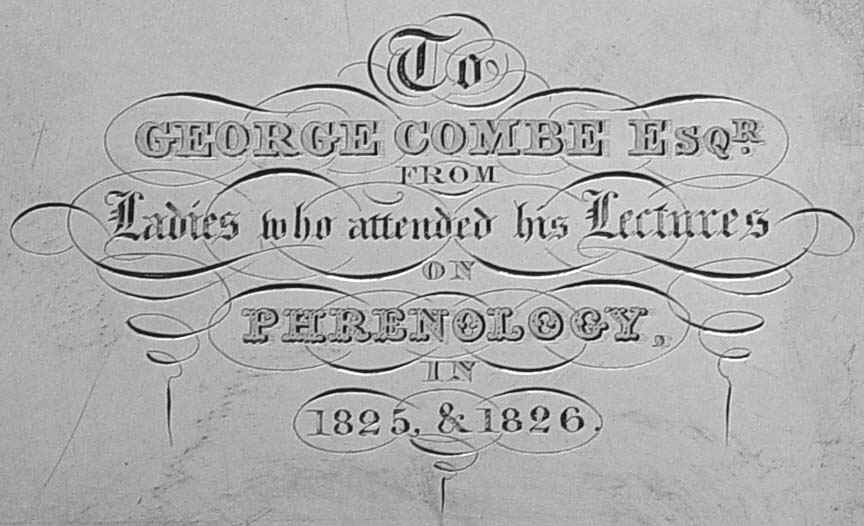 To
GEORGE COMBE ESQR.
FROM
Ladies who attended his Lectures
ON
PHRENOLOGY,
IN
1825, & 1826.